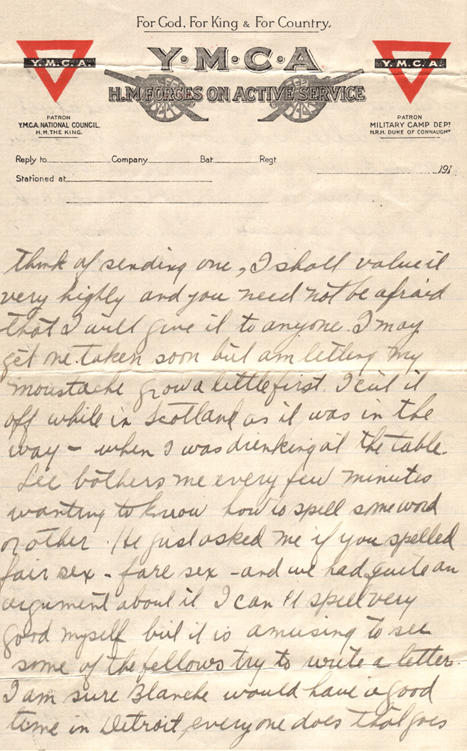 For God, For King & For Country.
Y·M·C·A
H.M FORCES ON ACTIVE SERVICE
Y.M.C.A.
PATRON
Y.M.C.A. NATIONAL COUNCIL.
H.M. THE KING.
Y.M.C.A.
PATRON
MILITARY CAMP DEPT
H.R.H. DUKE OF CONNAUGHT
Reply to Company Bat Regt
191
Stationed at
think of sending one, I shall value it
very highly and you need not be afraid
that I will give it to anyone. I may
get me taken soon but am letting my
moustache grow a little first. I cut it
off while in Scotland as it was in the
way – when I was drinking at the table.
Lee bothers me every few minutes
wanting to know how to spell some word
or other. He just asked me if you spelled
fair sex – fare sex – and we had quite an
argument about it I can't spell very
good myself but it is amusing to see
some of the fellows try to write a letter.
I am sure Blanche would have a good
time in Detroit, everyone does that goes